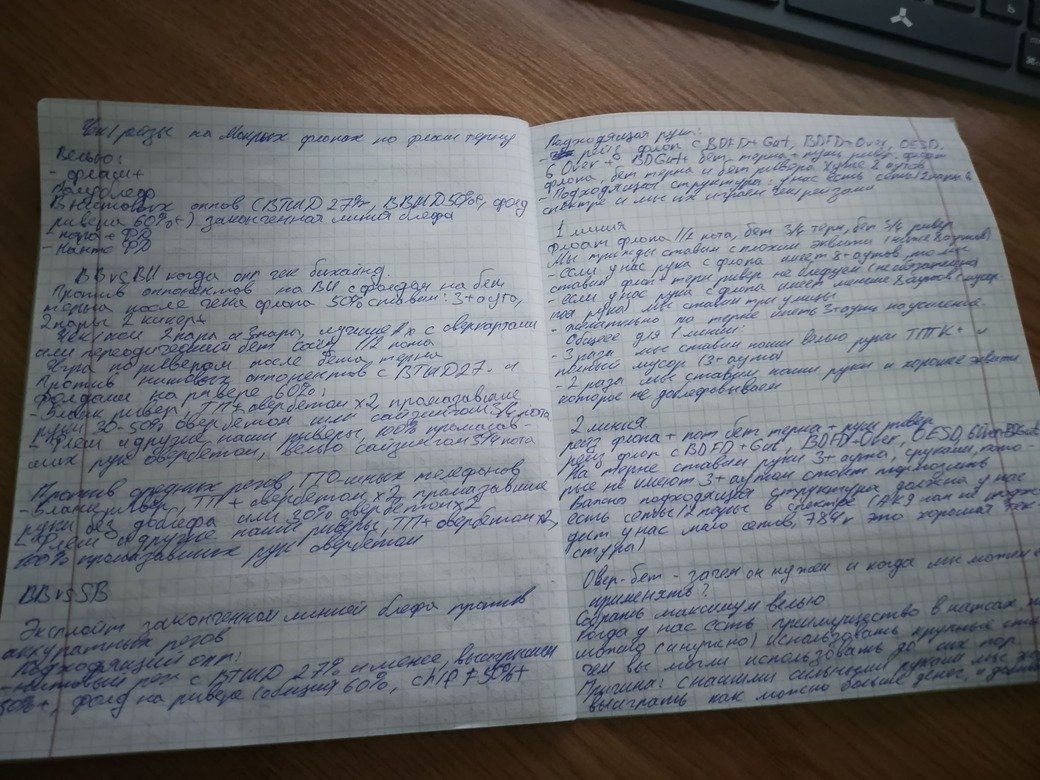 Чек/рейзы на Мокрых флопах по флеш терну
Велью:
- флеши+
Полублеф
(BTШD 27%, 50%+, фолд
ривера 60%+) законченная линия блефа
+ ФД
- Натс ФД
BB vs BU когда опп чек бихайнд.
Против оппонентов на BU с фолдом на бет
терна после чека флопа 50% ставим: 3+аута,
2 пары 2 кикер+
Чек кол 2 пара и 3 пара, лучшие с оверкартами
или периодический бет 1/2 пота
Игра по риверам после бета терна
Против нитовых оппонентов с BTШD 27- и
фолдами на ривере 60%:
- Бланк ривер, ТП+ овербетом x2, промазавшие
руки 30-50% овербетом или сайзингом 3/4 пота
- Флеш и другие наши риверы, 100% промазав-
ших рук овербетом, велью сайзингом 3/4 пота
Против средних регов, телефонов
- Бланк ривер, ТП+ овербетом, x2 промазавшие
руки без доблефа или 30% овербетом x2
- Флеш и другие наши риверы, ТП+ овербетом x2,
100% промазавших рук овербетом
BB vs SB
Эксплойт законченной линией блефа против
аккуратных регов
Подходящий опп:
- Нитовый рег с BTШD 27% и менее,
50%+, фолд на ривере (общий 60%, 50%+
Подходящая рука:
- рейз флоп с BDFD+Gut, BDFD+Over, OESD,
6 Over + BDGut+ бет терна + пуш ривер.
флопа, бет терна и бет ривера хуже 8 аутов
- Подходящая структура - у нас есть сеты/2 пары в
спектре и мы их играем чек рейзом
1 линия
Флоат флопа 1/2 пота, бет 3/4 терн, бет 3/4 ривер
Мы трижды ставим с плохим эквити (ниже 8 аутов)
- если у нас рука с флопа имеет 8+ аутов, то мы
ставим флоп+терн, ривер не блефуем
- если у нас рука с флопа имеет меньше 8 аутов
под руки мы ставим три улицы
- желательно на терне иметь 3+аута на усиление
Общее для 1 линии:
- 3 раза мы ставим наши велью руки ТПТК+ и
полный мусор (3+аута)
- 2 раза мы ставим наши руки и хорошее эквити
которое не доблефовываем
2 линия
рейз флопа + пот бет терна + пуш ривер
рейз флоп с BDFD+Gut, BDFD+Over, OESD, 6 Over+BDGut
На терне ставим руки 3+аута, с руками, кото
рые не имеют 3+аутом стоит притормозить
Важно подходящая структура должна у нас
есть сеты/2 пары в спектре (AK9 нам не подхо-
дит у нас мало сетов, 784r это хорошая тек-
стура)
Овер-бет - зачем он нужен и когда мы можем его
применять?
Собрать максимум велью
Когда у нас есть преимущество в натсах,
можно (и нужно) использовать крупные
чем вы могли использовать до сих пор.
Причина: с нашими сильными руками мы хо
выиграть как можно больше денег, и